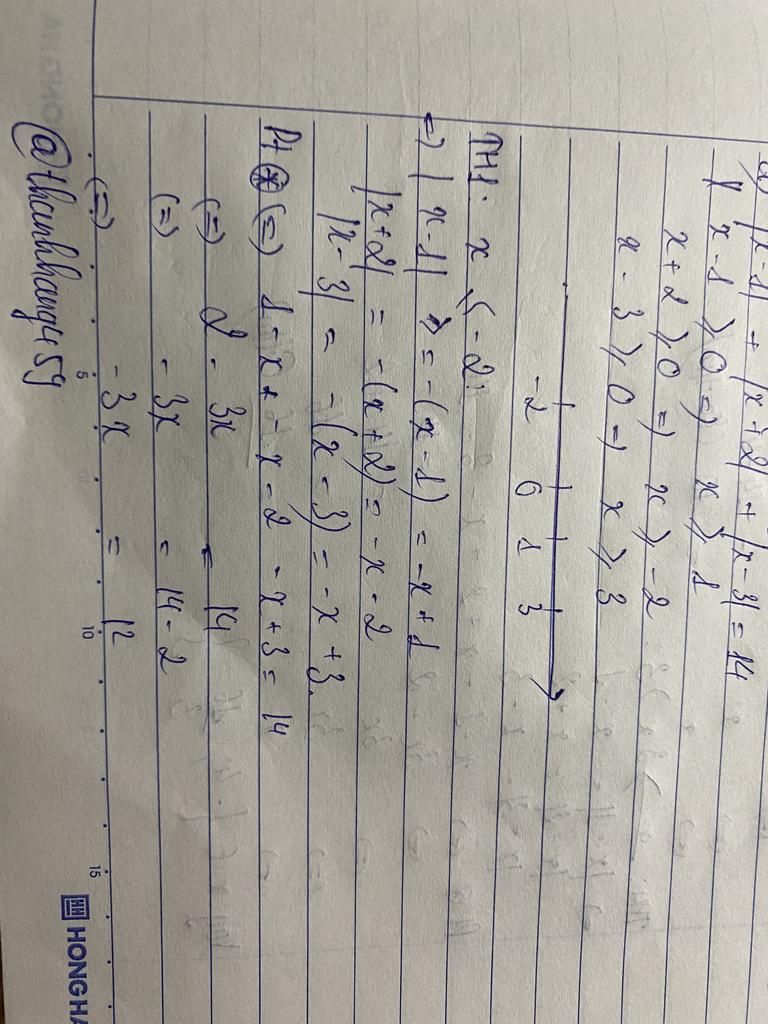 |x-1| + |x+2| + |x-3| = 14
x-1 ⩾ 0 => x ⩾ 1
x+2 ⩾ 0 => x ⩾ -2
x-3 ⩾ 0 => x ⩾ 3
-2 0 1 3
TH1: x < -2:
=> |x-1| = -(x-1) = -x+1
|x+2| = -(x+2) = -x-2
|x-3| = -(x-3) = -x+3.
Pt ⊛ (=) 1-x+-x-2-x+3 = 14
(=) 2-3x = 14
(=) -3x = 14-2
(=) -3x = 12
5 10 15
@thanhhang459
HONG HA